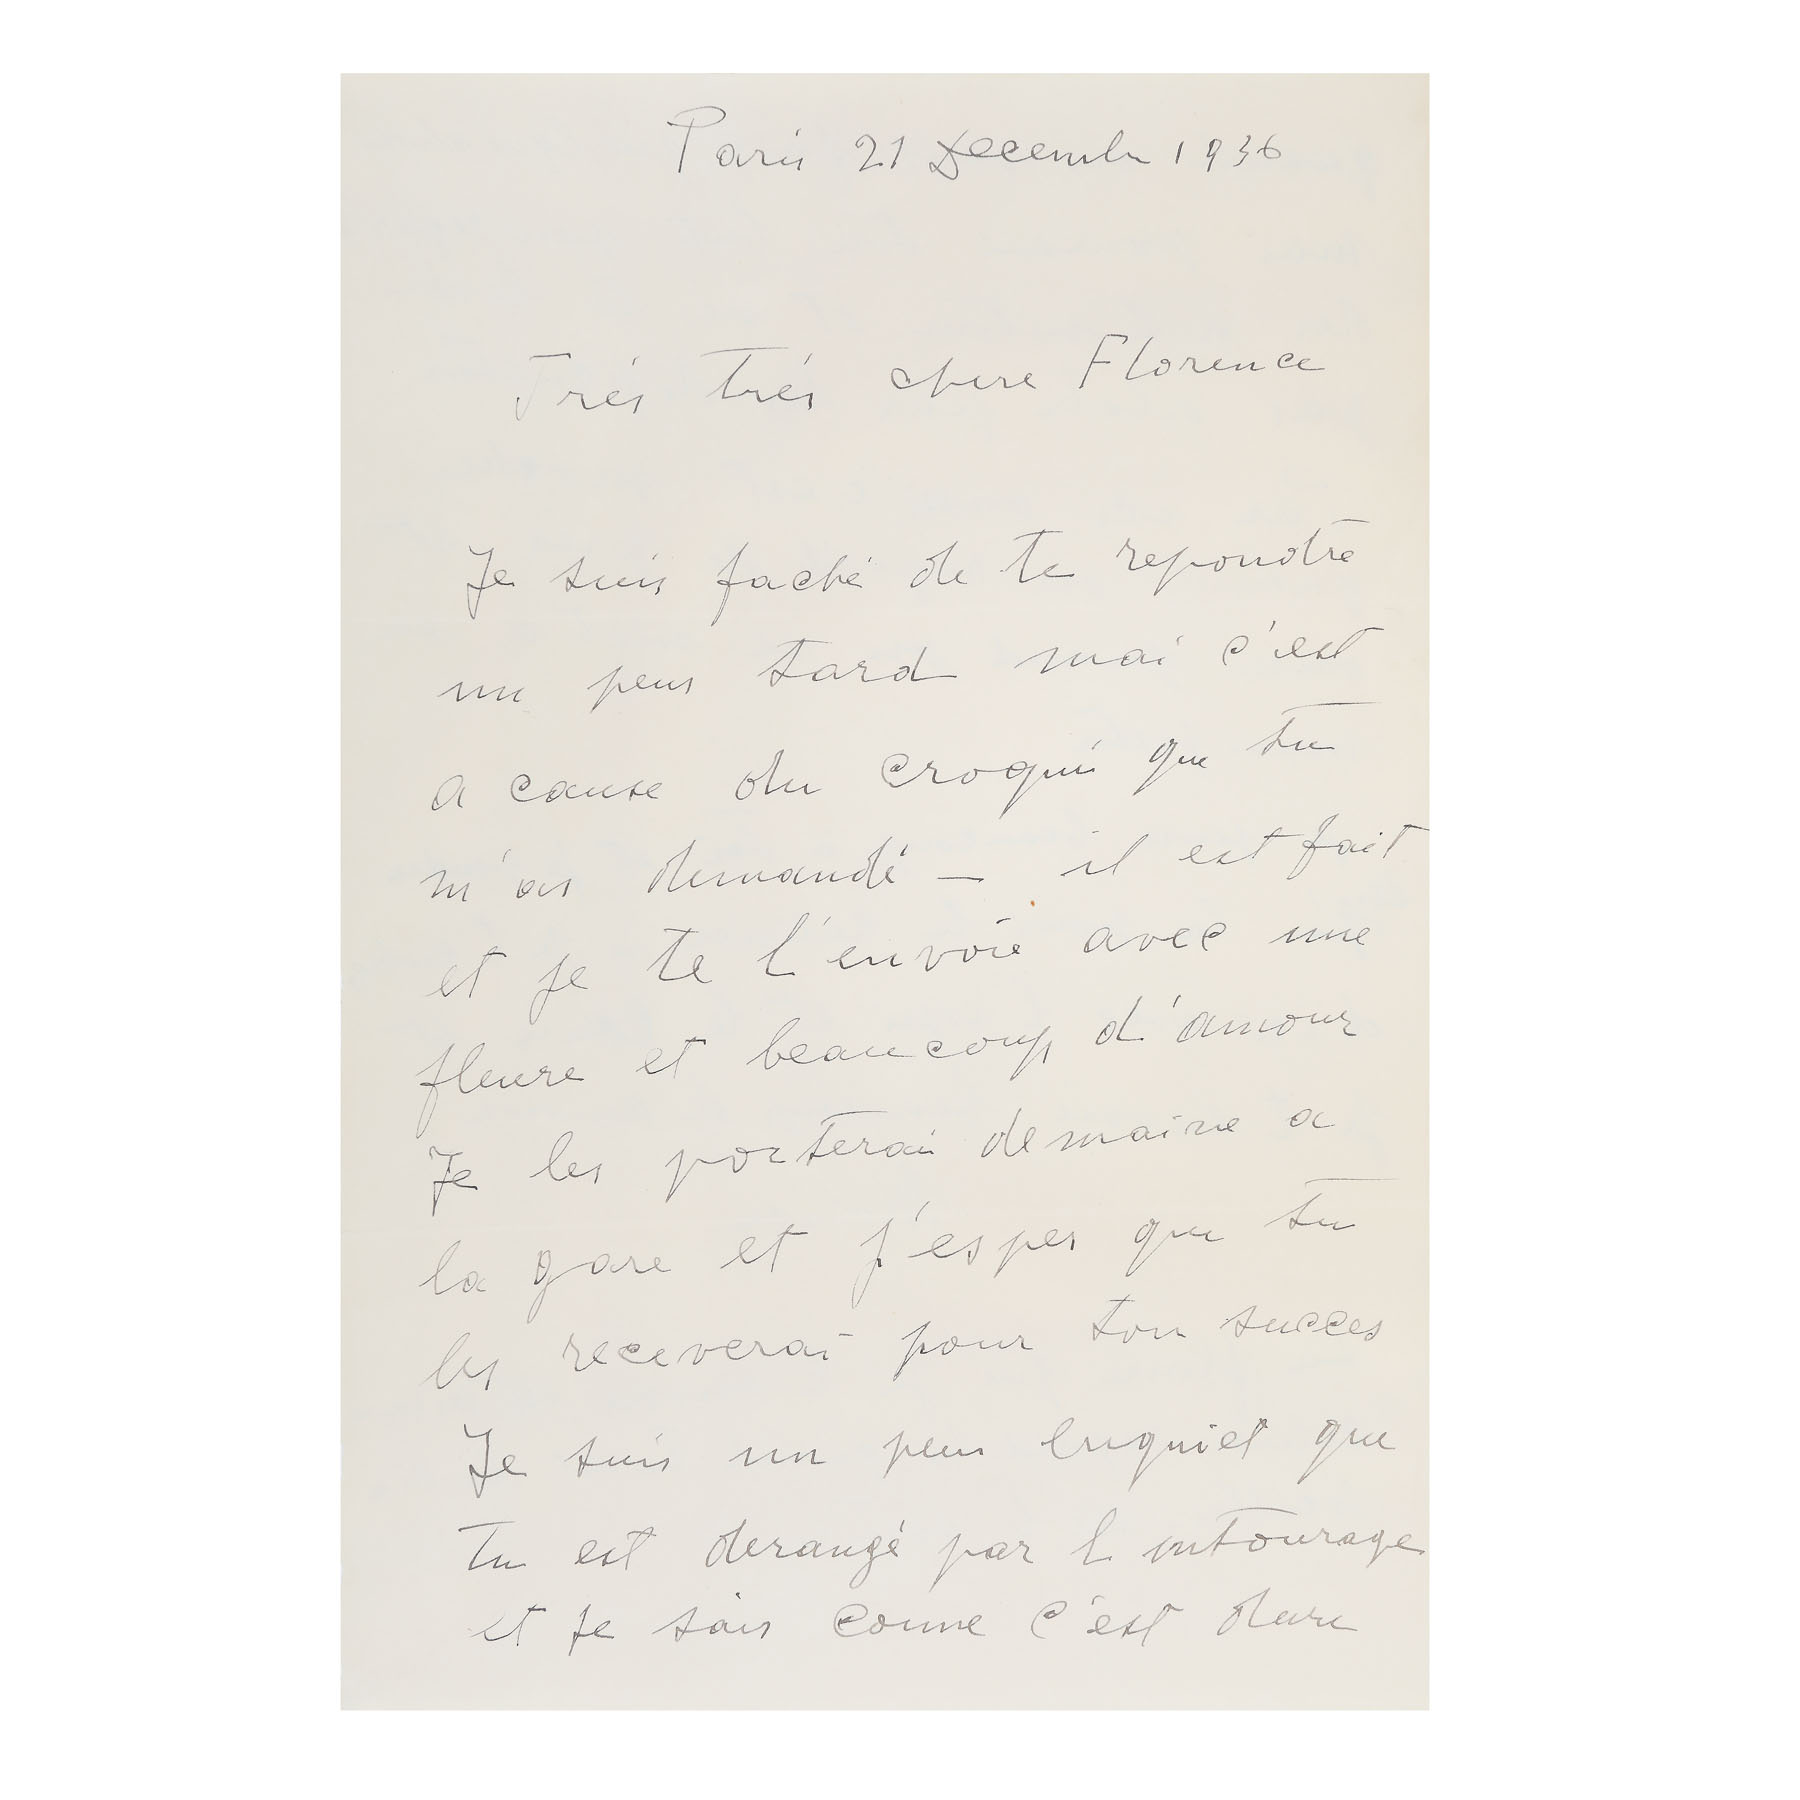 Paris 21 Decembre 1936
Trés trés chere Florence
Je suis faché de te repondre
un peus tard mai c'est
a cause du croquis que tu
m'as demandé – il est fait
et je te l'envoie avec une
fleure et beaucoup d'amour
Je les porterai demaine a
la gare et j'esper que tu
les receverai pour ton succes
Je suis un peu enquiet que
tu est derangé par l entourage
et je sais comme c'est dure